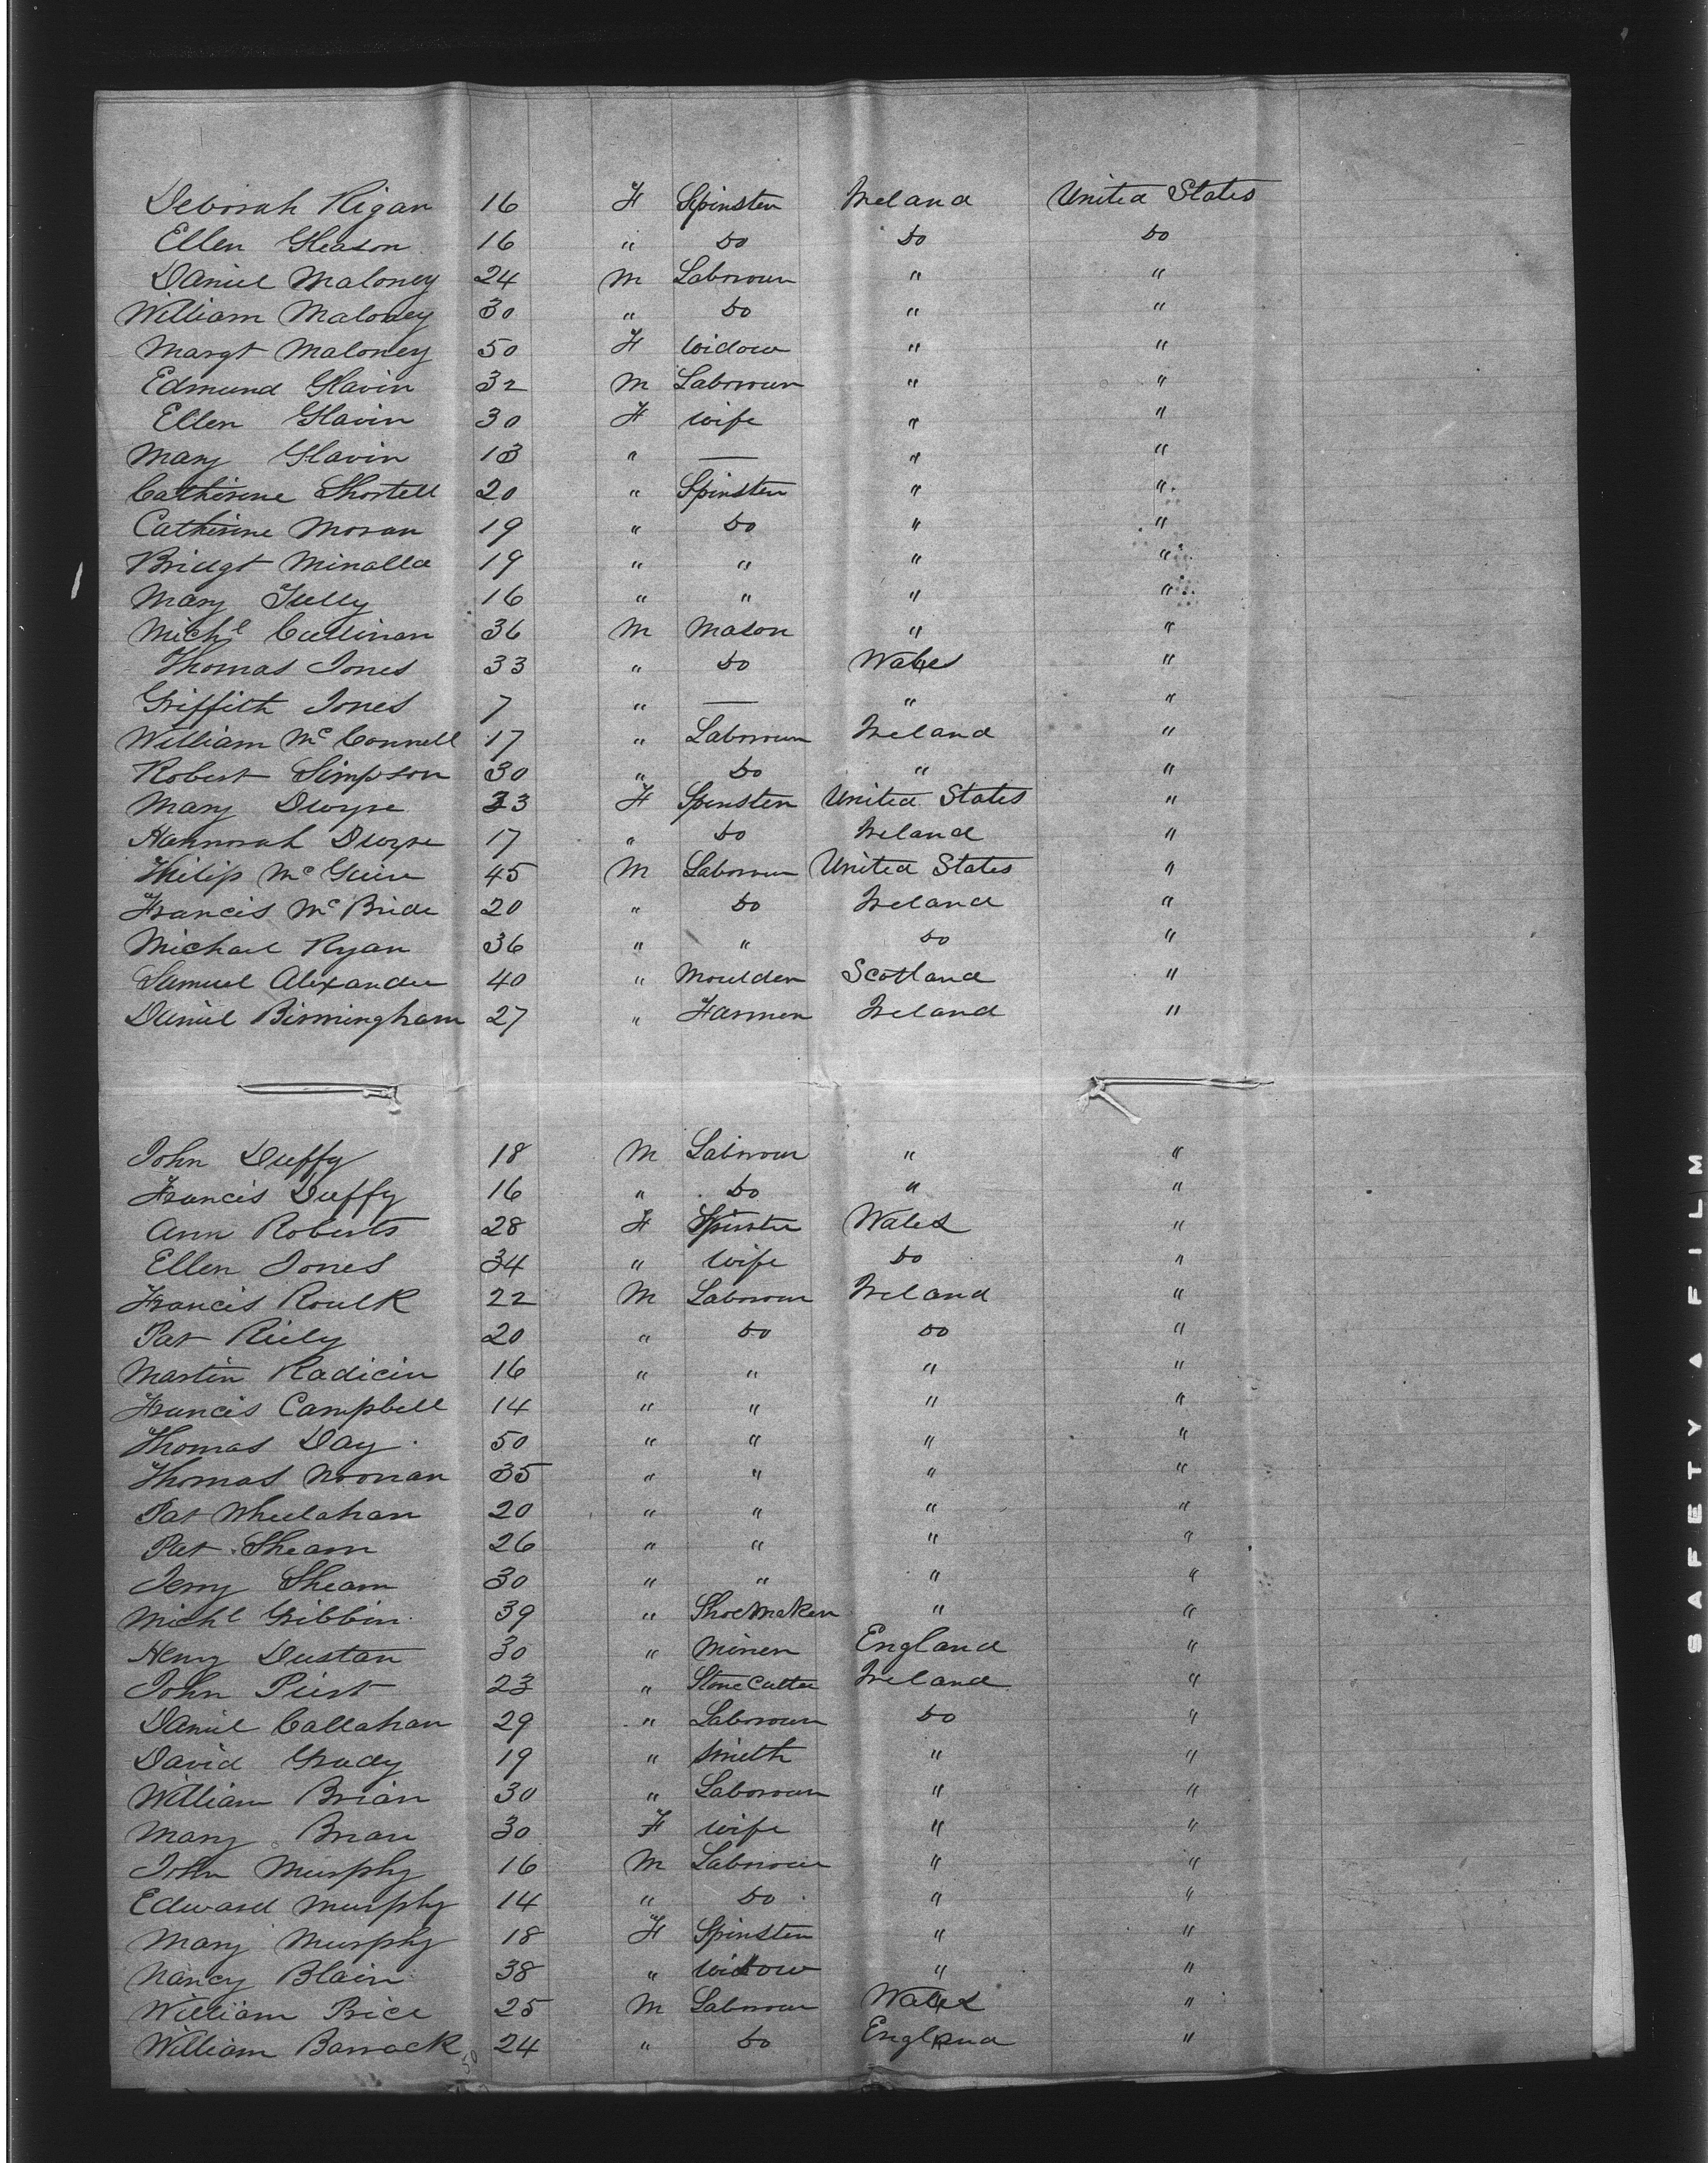 Deborah Rigan 16 F Spinster Ireland United States
Ellen Gleason 16 " Do Do Do
Daniel Maloney 24 M Labourer " "
William Maloney 30 " Do " "
Margt Maloney 50 F Widow " "
Edmund Glavin 32 M Labourer " "
Ellen Glavin 30 F Wife " "
Mary Glavin 13 " — " "
Catherine Shortell 20 " Spinster " "
Catherine Moran 19 " Do " "
Bridgt Minalla 19 " " " "
Mary Tully 16 " " " "
Michl Cullinan 36 M Mason " "
Thomas Jones 33 " Do Wales "
Griffith Jones 7 " — " "
William McConnell 17 " Labourer Ireland "
Robert Simpson 30 " Do " "
Mary Dwyre 33 F Spinster United States "
Hannorah Dwyre 17 " Do Ireland "
Philip McGuire 45 M Labourer United States "
Francis McBride 20 " Do Ireland "
Michael Ryan 36 " " Do "
Samuel Alexander 40 " Moulder Scotland "
Daniel Birmingham 27 " Farmer Ireland "
John Duffy 18 M Labourer " "
Francis Duffy 16 " Do " "
Ann Roberts 28 F Spinster Wales "
Ellen Jones 34 " Wife Do "
Francis Roulk 22 M Labourer Ireland "
Pat Riely 20 " Do Do "
Martin Radicin 16 " " " "
Francis Campbell 14 " " " "
Thomas Day 50 " " " "
Thomas Noonan 35 " " " "
Pat Wheelahan 20 " " " "
Pat Shearn 26 " " " "
Jerry Shearn 30 " " " "
Michl Gribbin 39 " Shoemaker " "
Henry Dustan 30 " Miner England "
John Pierst 23 " Stone Cutter Ireland "
Daniel Callahan 29 " Labourer Do "
David Grady 19 " Smith " "
William Brian 30 " Labourer " "
Mary Brian 30 F Wife " "
John Murphy 16 M Labourer " "
Edward Murphy 14 " Do " "
Mary Murphy 18 F Spinster " "
Nancy Blain 38 " Widow " "
William Price 25 M Labourer Wales "
William Barrack 24 " Do England "
50
SAFETY A FILM